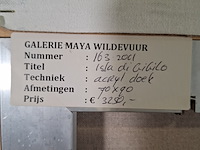 GALERIE MAYA WILDEVUUR
Nummer : 163 2001
Titel : Isla di Gibilo
Techniek : acryl doek
Afmetingen : 70x90
Prijs : € 3250,-